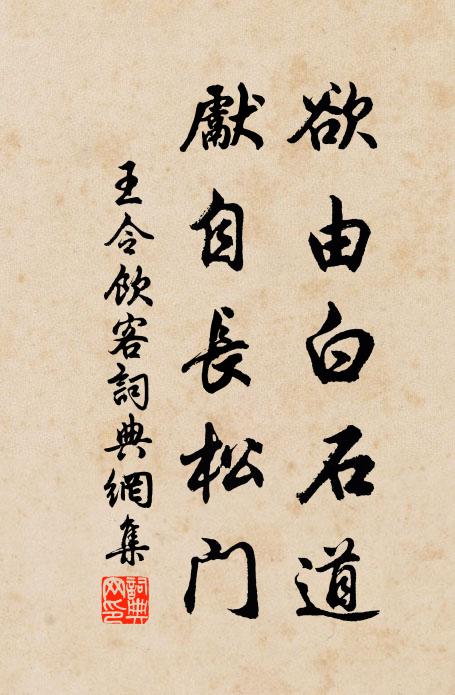 欲由白石道
獻自長松門
王令飲客詞典網集
詞典網印